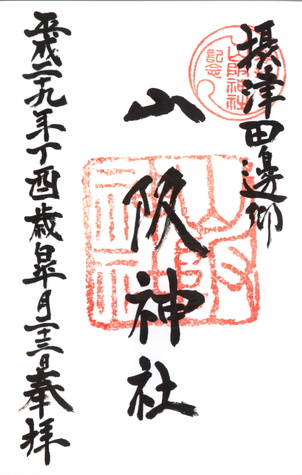 摂津田邊郷
山阪神社
平成二十九年丁酉歳皐月二十三日奉拝
山阪神社
記念